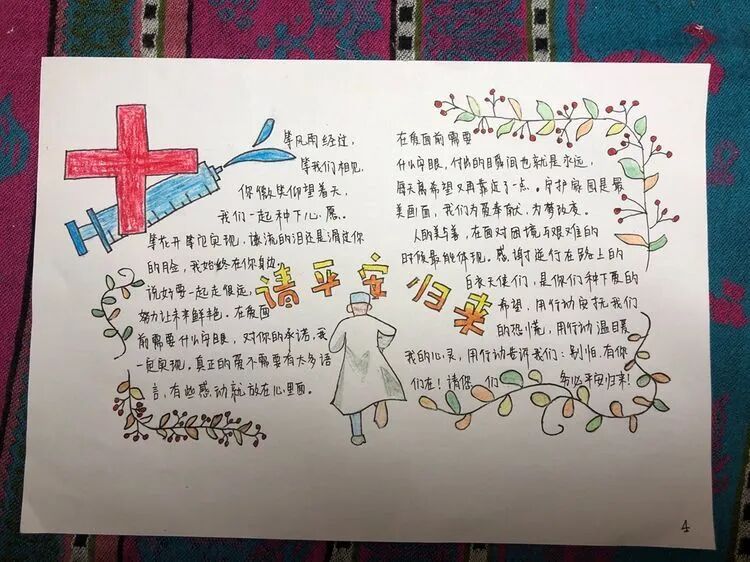 等风雨经过,
等我们相见,
你微笑仰望着天,
我们一起种下心愿。
等花开等它实现,谁流的泪还是滑过你
的脸,我始终在你身边,
说好要一起走很远,
努力让未来鲜艳。在爱面
前需要什么守眼,对你的承诺,我
一定实现。真正的爱不需要有太多语
言,有些感动就放在心里面。
请平安归来
在爱面前需要
什么守眼,付出的瞬间也就是永远,
每天离希望又再靠近了一点。守护家园是最
美画面,我们为爱奉献,为梦改变。
人的美与善,在面对困境与艰难的
时候最能体现。感谢逆行在路上的
白衣天使们,是你们种下爱的
希望,用行动安抚我们
的恐慌,用行动温暖
我的心灵,用行动告诉我们:别怕,有你
们在!请您们 务必平安归来!
4